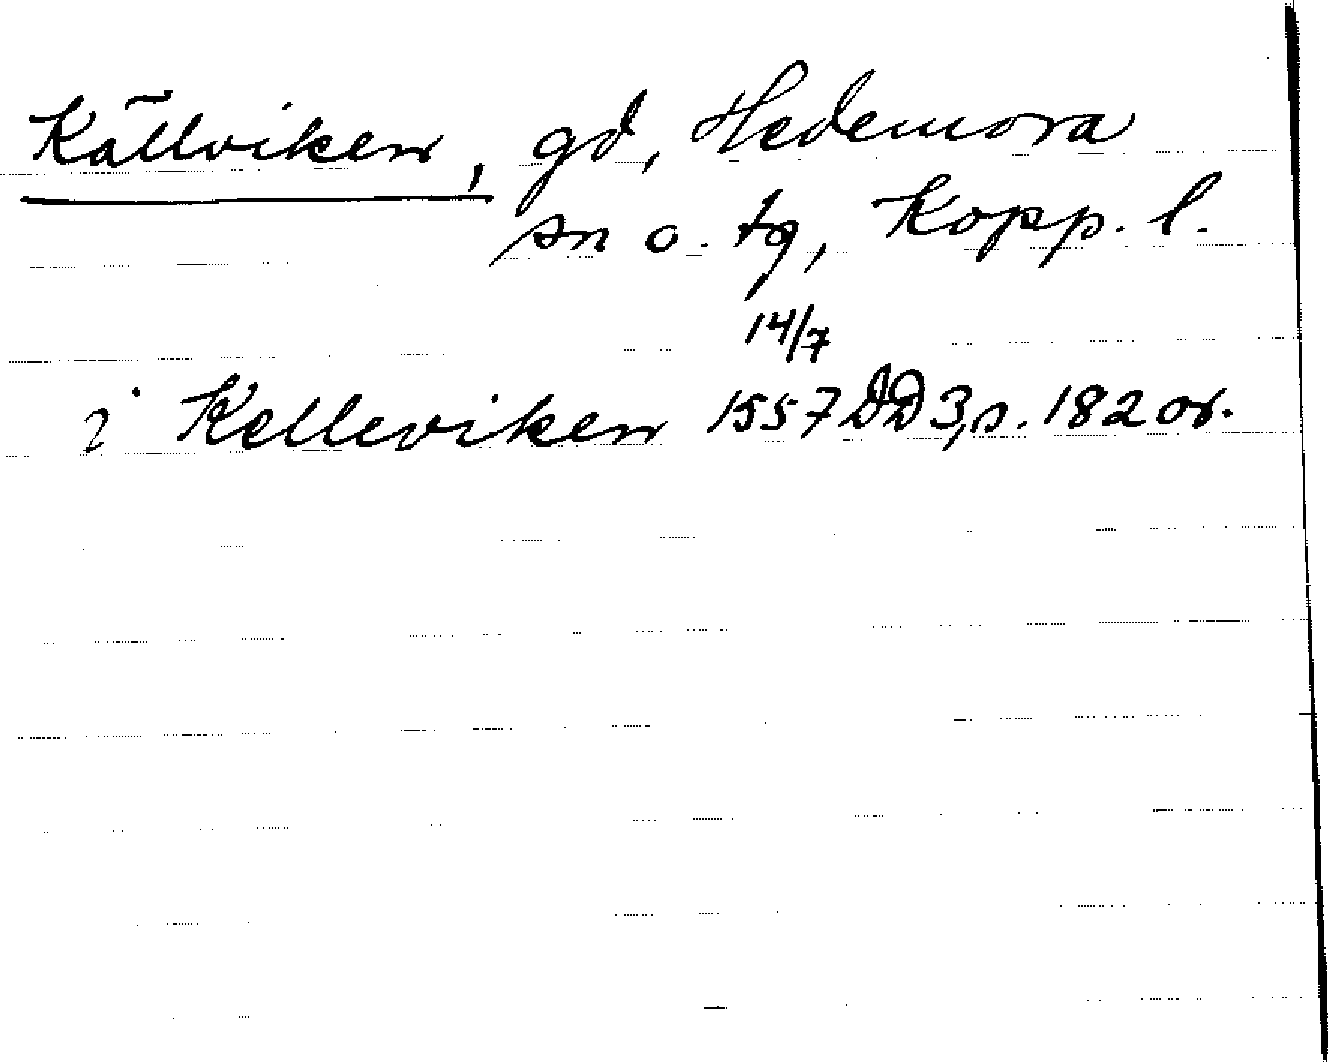 Källviken, gd, Hedemora
sn o. tg, Kopp. l.
14/7
i Kelleviken 1557 DD 3, s. 182 or.